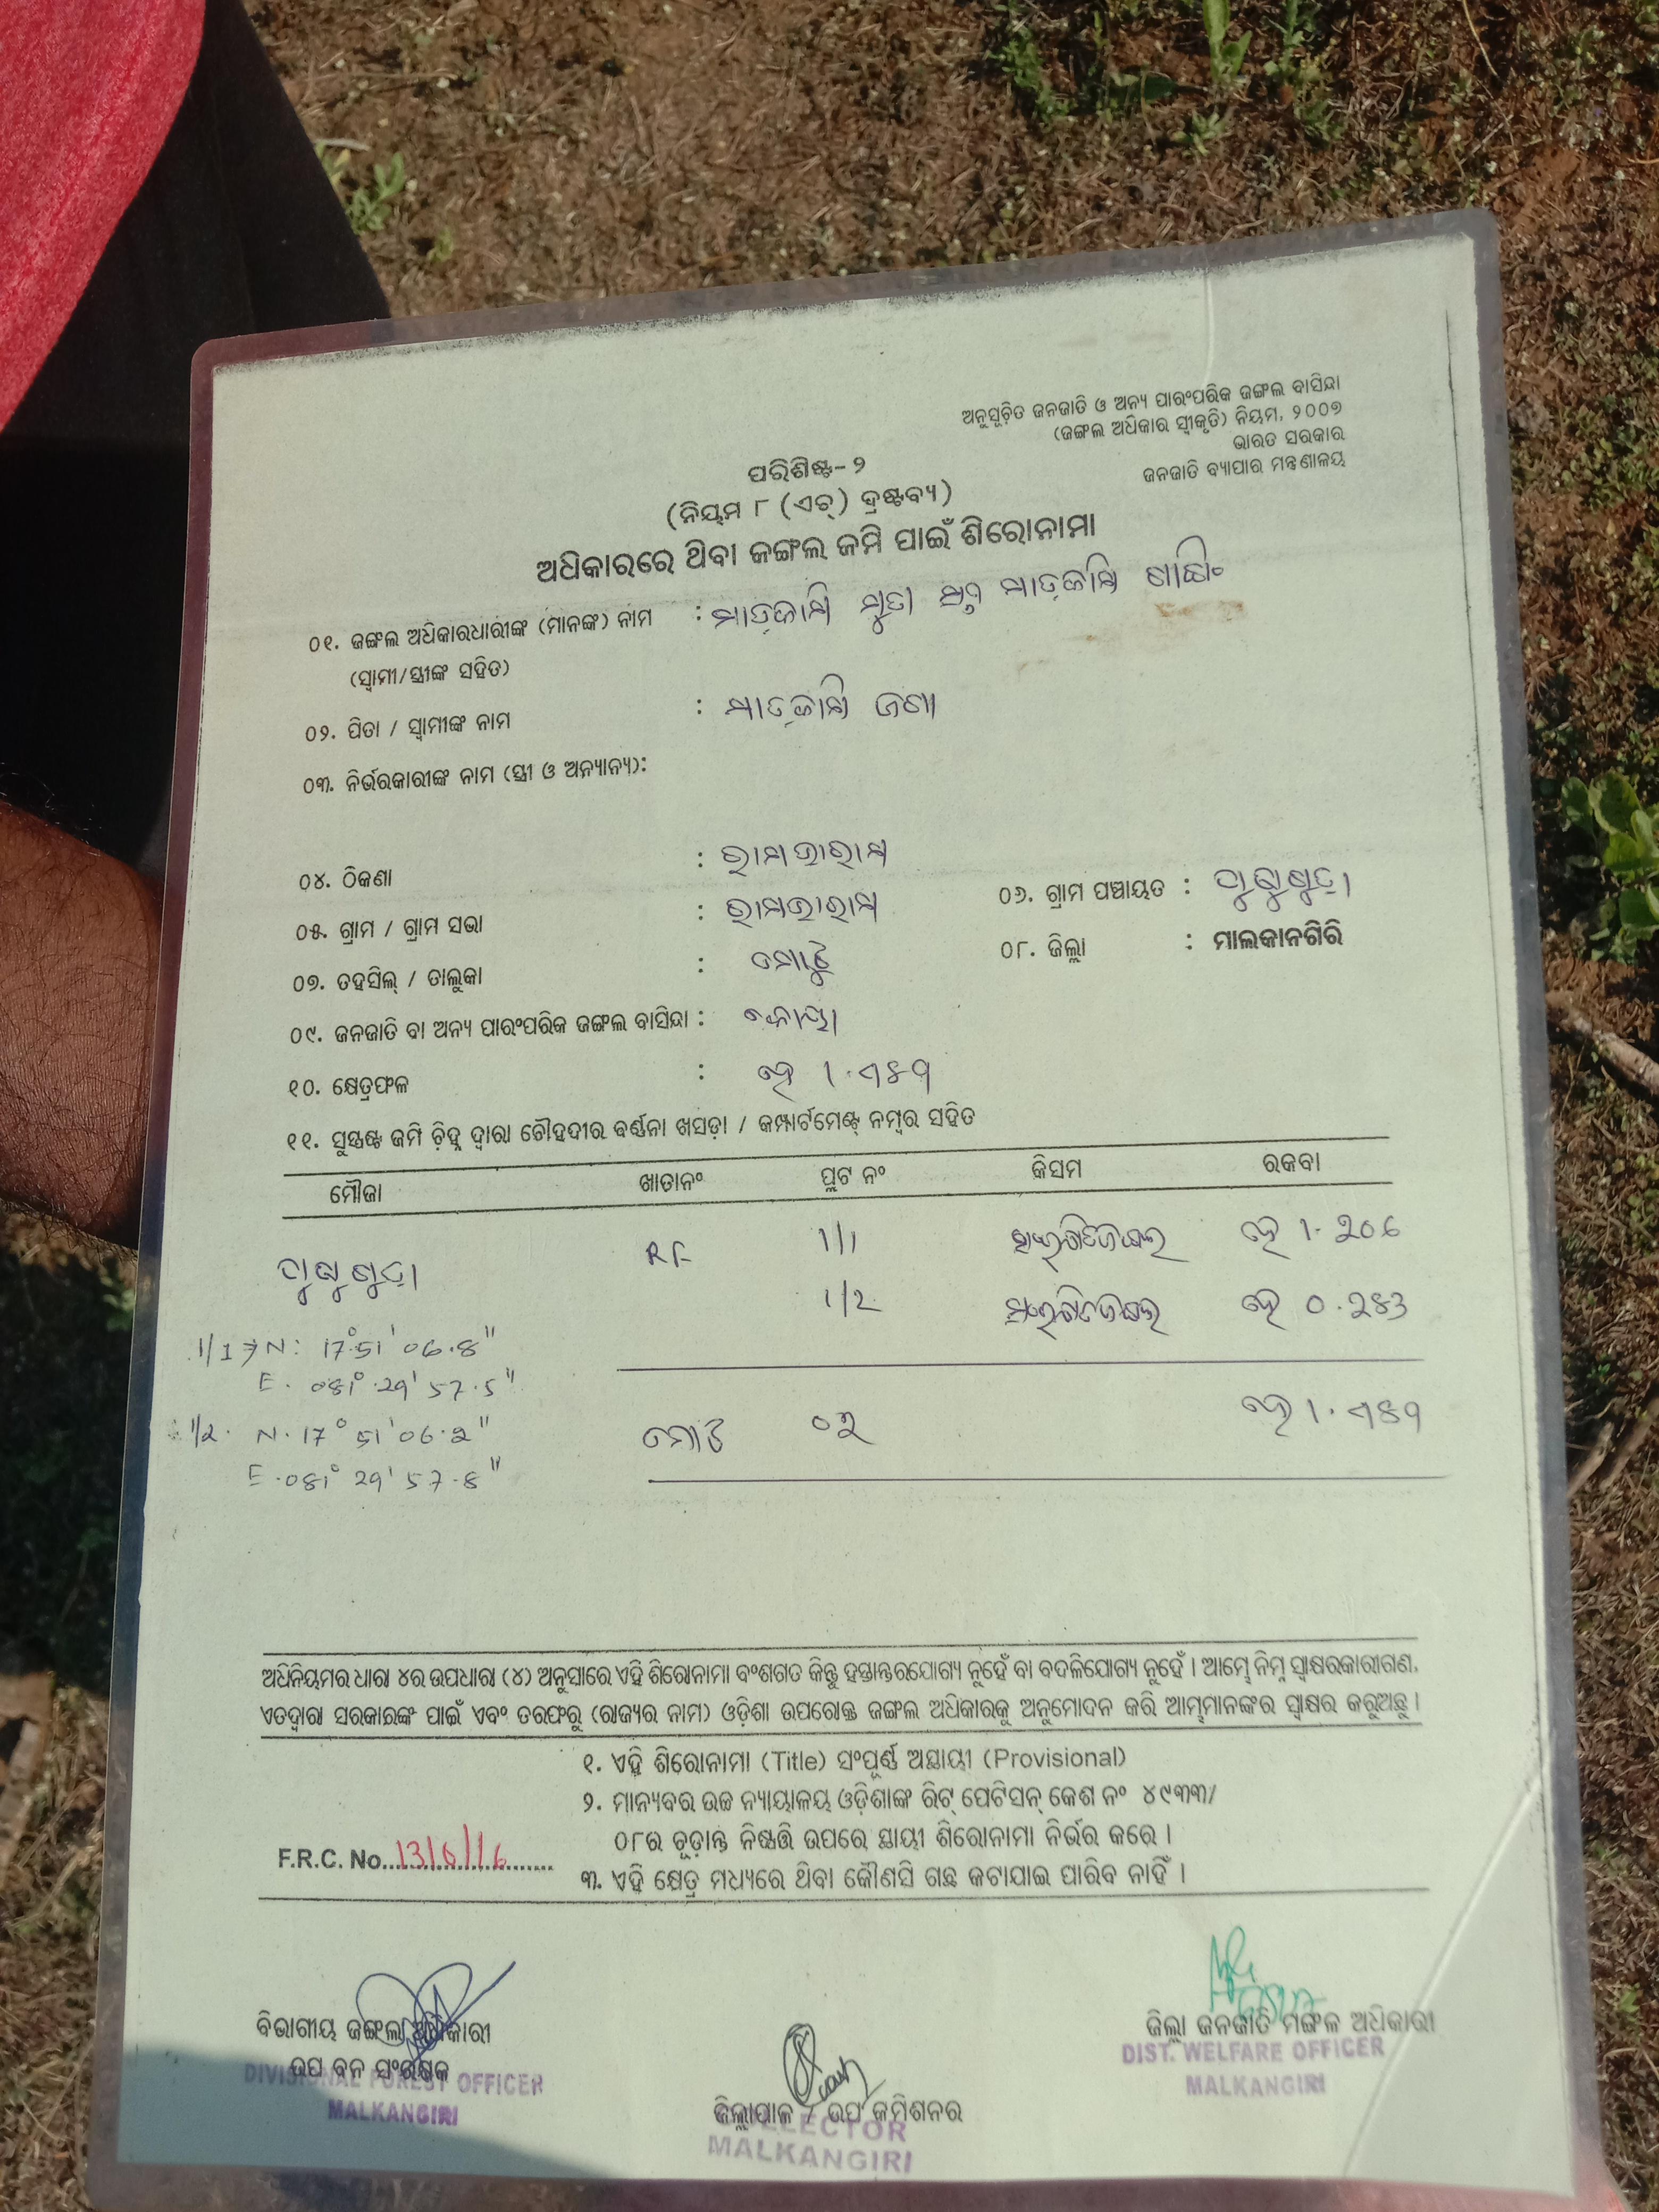 ଅନୁସୂଚିତ ଜନଜାତି ଓ ଅନ୍ୟ ପାରଂପରିକ ଜଙ୍ଗଲ ବାସିନ୍ଦା
(ଜଙ୍ଗଲ ଅଧିକାର ସ୍ୱୀକୃତି) ନିୟମ, ୨୦୦୭
ଭାରତ ସରକାର
ଜନଜାତି ବ୍ୟାପାର ମନ୍ତ୍ରଣାଳୟ
ପରିଶିଷ୍ଟ-୨
(ନିୟମ ୮ (ଏଚ୍) ଦ୍ରଷ୍ଟବ୍ୟ)
ଅଧିକାରରେ ଥିବା ଜଙ୍ଗଲ ଜମି ପାଇଁ ଶିରୋନାମା
୦୧. ଜଙ୍ଗଲ ଅଧିକାରଧାରୀଙ୍କ (ମାନଙ୍କ) ନାମ :
(ସ୍ୱାମୀ/ସ୍ତ୍ରୀଙ୍କ ସହିତ)
୦୨. ପିତା / ସ୍ୱାମୀଙ୍କ ନାମ :
୦୩. ନିର୍ଭରକାରୀଙ୍କ ନାମ (ସ୍ତ୍ରୀ ଓ ଅନ୍ୟାନ୍ୟ):
୦୪. ଠିକଣା :
୦୫. ଗ୍ରାମ / ଗ୍ରାମ ସଭା : ୦୬. ଗ୍ରାମ ପଞ୍ଚାୟତ :
୦୭. ତହସିଲ୍ / ତାଲୁକା : ୦୮. ଜିଲ୍ଲା : ମାଲକାନଗିରି
୦୯. ଜନଜାତି ବା ଅନ୍ୟ ପାରଂପରିକ ଜଙ୍ଗଲ ବାସିନ୍ଦା : କୋୟା
୧୦. କ୍ଷେତ୍ରଫଳ : ହେ
୧୧. ସୁସ୍ପଷ୍ଟ ଜମି ଚିହ୍ନ ଦ୍ୱାରା ଚୌହଦୀର ବର୍ଣ୍ଣନା ଖସଡ଼ା / କମ୍ପାର୍ଟମେଣ୍ଟ୍ ନମ୍ବର ସହିତ
ମୌଜା ଖାତାନଂ ପ୍ଲଟ ନଂ କିସମ ରକବା
RF 1/1 ହେ
1/2 ହେ
1/1 N: 17°51' 06.8"
E. 081°.29' 57.5"
1/2. N.17° 51' 06.2"
E.081° 29' 57.8"
ମୋଟ ହେ
ଅଧିନିୟମର ଧାରା ୪ର ଉପଧାରା (୪) ଅନୁସାରେ ଏହି ଶିରୋନାମା ବଂଶଗତ କିନ୍ତୁ ହସ୍ତାନ୍ତରଯୋଗ୍ୟ ନୁହେଁ ବା ବଦଳିଯୋଗ୍ୟ ନୁହେଁ । ଆମ୍ଭେ ନିମ୍ନ ସ୍ୱାକ୍ଷରକାରୀଗଣ,
ଏତଦ୍ୱାରା ସରକାରଙ୍କ ପାଇଁ ଏବଂ ତରଫରୁ (ରାଜ୍ୟର ନାମ) ଓଡ଼ିଶା ଉପରୋକ୍ତ ଜଙ୍ଗଲ ଅଧିକାରକୁ ଅନୁମୋଦନ କରି ଆମ୍ଭମାନଙ୍କର ସ୍ୱାକ୍ଷର କରୁଅଛୁ ।
୧. ଏହି ଶିରୋନାମା (Title) ସଂପୂର୍ଣ୍ଣ ଅସ୍ଥାୟୀ (Provisional)
୨. ମାନ୍ୟବର ଉଚ୍ଚ ନ୍ୟାୟାଳୟ ଓଡ଼ିଶାଙ୍କ ରିଟ୍ ପେଟିସନ୍ କେଶ ନଂ ୪୯୩୩/
୦୮ର ଚୂଡ଼ାନ୍ତ ନିଷ୍ପତ୍ତି ଉପରେ ସ୍ଥାୟୀ ଶିରୋନାମା ନିର୍ଭର କରେ ।
F.R.C. No. 13/6/16
୩. ଏହି କ୍ଷେତ୍ର ମଧ୍ୟରେ ଥିବା କୌଣସି ଗଛ କଟାଯାଇ ପାରିବ ନାହିଁ ।
ବିଭାଗୀୟ ଜଙ୍ଗଲ ଅଧିକାରୀ
ଉପ ବନ ସଂରକ୍ଷକ
DIVISIONAL FOREST OFFICER
MALKANGIRI
ଜିଲ୍ଲାପାଳ / ଉପ କମିଶନର
COLLECTOR
MALKANGIRI
ଜିଲ୍ଲା ଜନଜାତି ମଙ୍ଗଳ ଅଧିକାରୀ
DIST. WELFARE OFFICER
MALKANGIRI